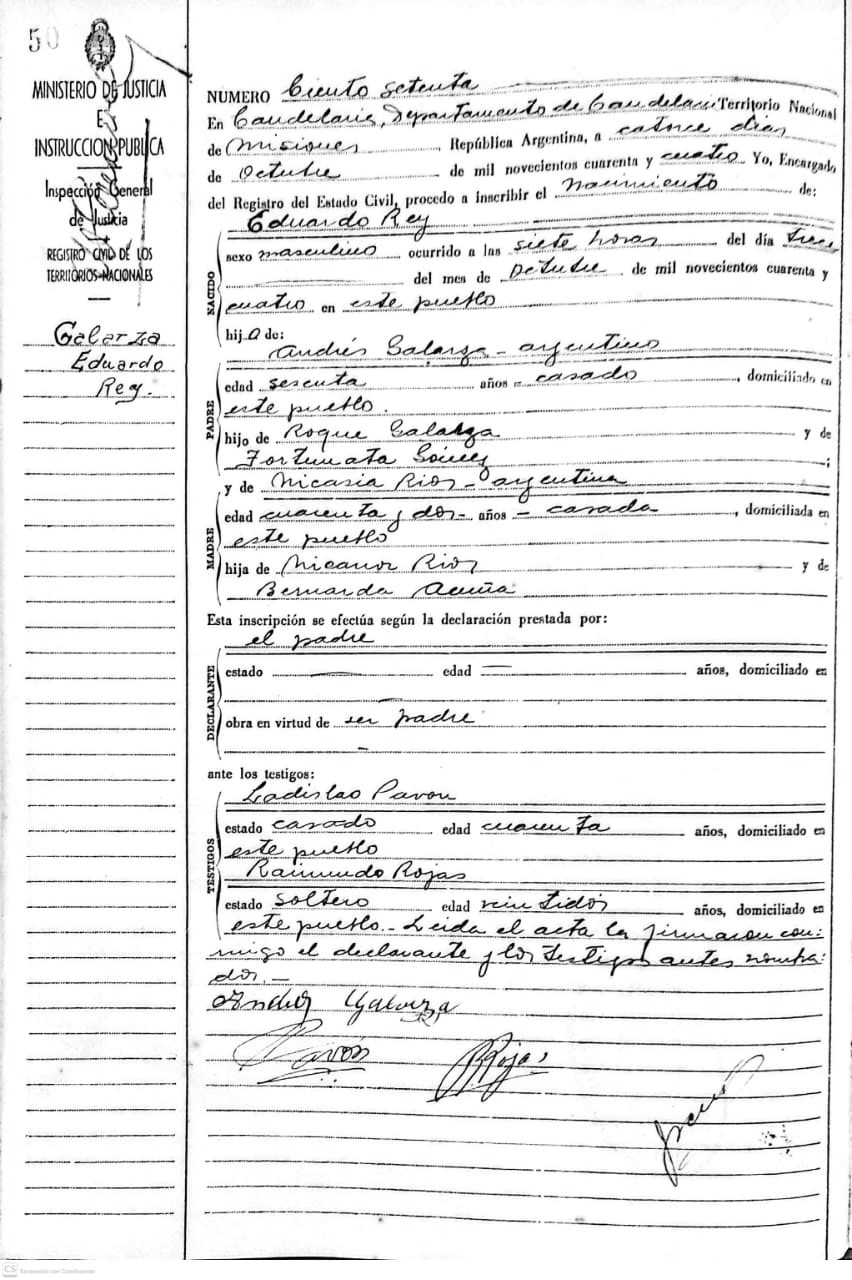 50
MINISTERIO DE JUSTICIA
E
INSTRUCCION PUBLICA
Inspección General
de Justicia
REGISTRO CIVIL DE LOS
TERRITORIOS NACIONALES
Galarza
Eduardo
Rey.
NUMERO Ciento setenta
En Candelaria, Departamento de Candelaria Territorio Nacional
de Misiones República Argentina, a catorce dias
de Octubre de mil novecientos cuarenta y cuatro Yo, Encargado
del Registro del Estado Civil, procedo a inscribir el Nacimiento de:
Eduardo Rey
NACIDO
sexo masculino ocurrido a las siete horas del día trece
del mes de Octubre de mil novecientos cuarenta y
cuatro en este pueblo
hijo de:
Andrés Galarza - argentino
PADRE
edad sesenta años - casado, domiciliado en
este pueblo.
hijo de Roque Galarza y de
Fortunata Gómez;
y de Nicasia Rios - argentina
MADRE
edad cuarenta y dos - años - casada, domiciliada en
este pueblo
hija de Nicanor Rios y de
Bernarda Acuña
Esta inscripción se efectúa según la declaración prestada por:
el padre
DECLARANTE
estado edad años, domiciliado en
obra en virtud de ser padre
ante los testigos:
Ladislao Pavon
TESTIGOS
estado casado edad cuarenta años, domiciliado en
este pueblo
Raimundo Rojas
estado soltero edad veintidós años, domiciliado en
este pueblo.- Leida el acta la firmaron con-
migo el declarante y los testigos antes nombra-
dos.-
Andrés Galarza
Pavón
RRojas
CS Escaneado con CamScanner